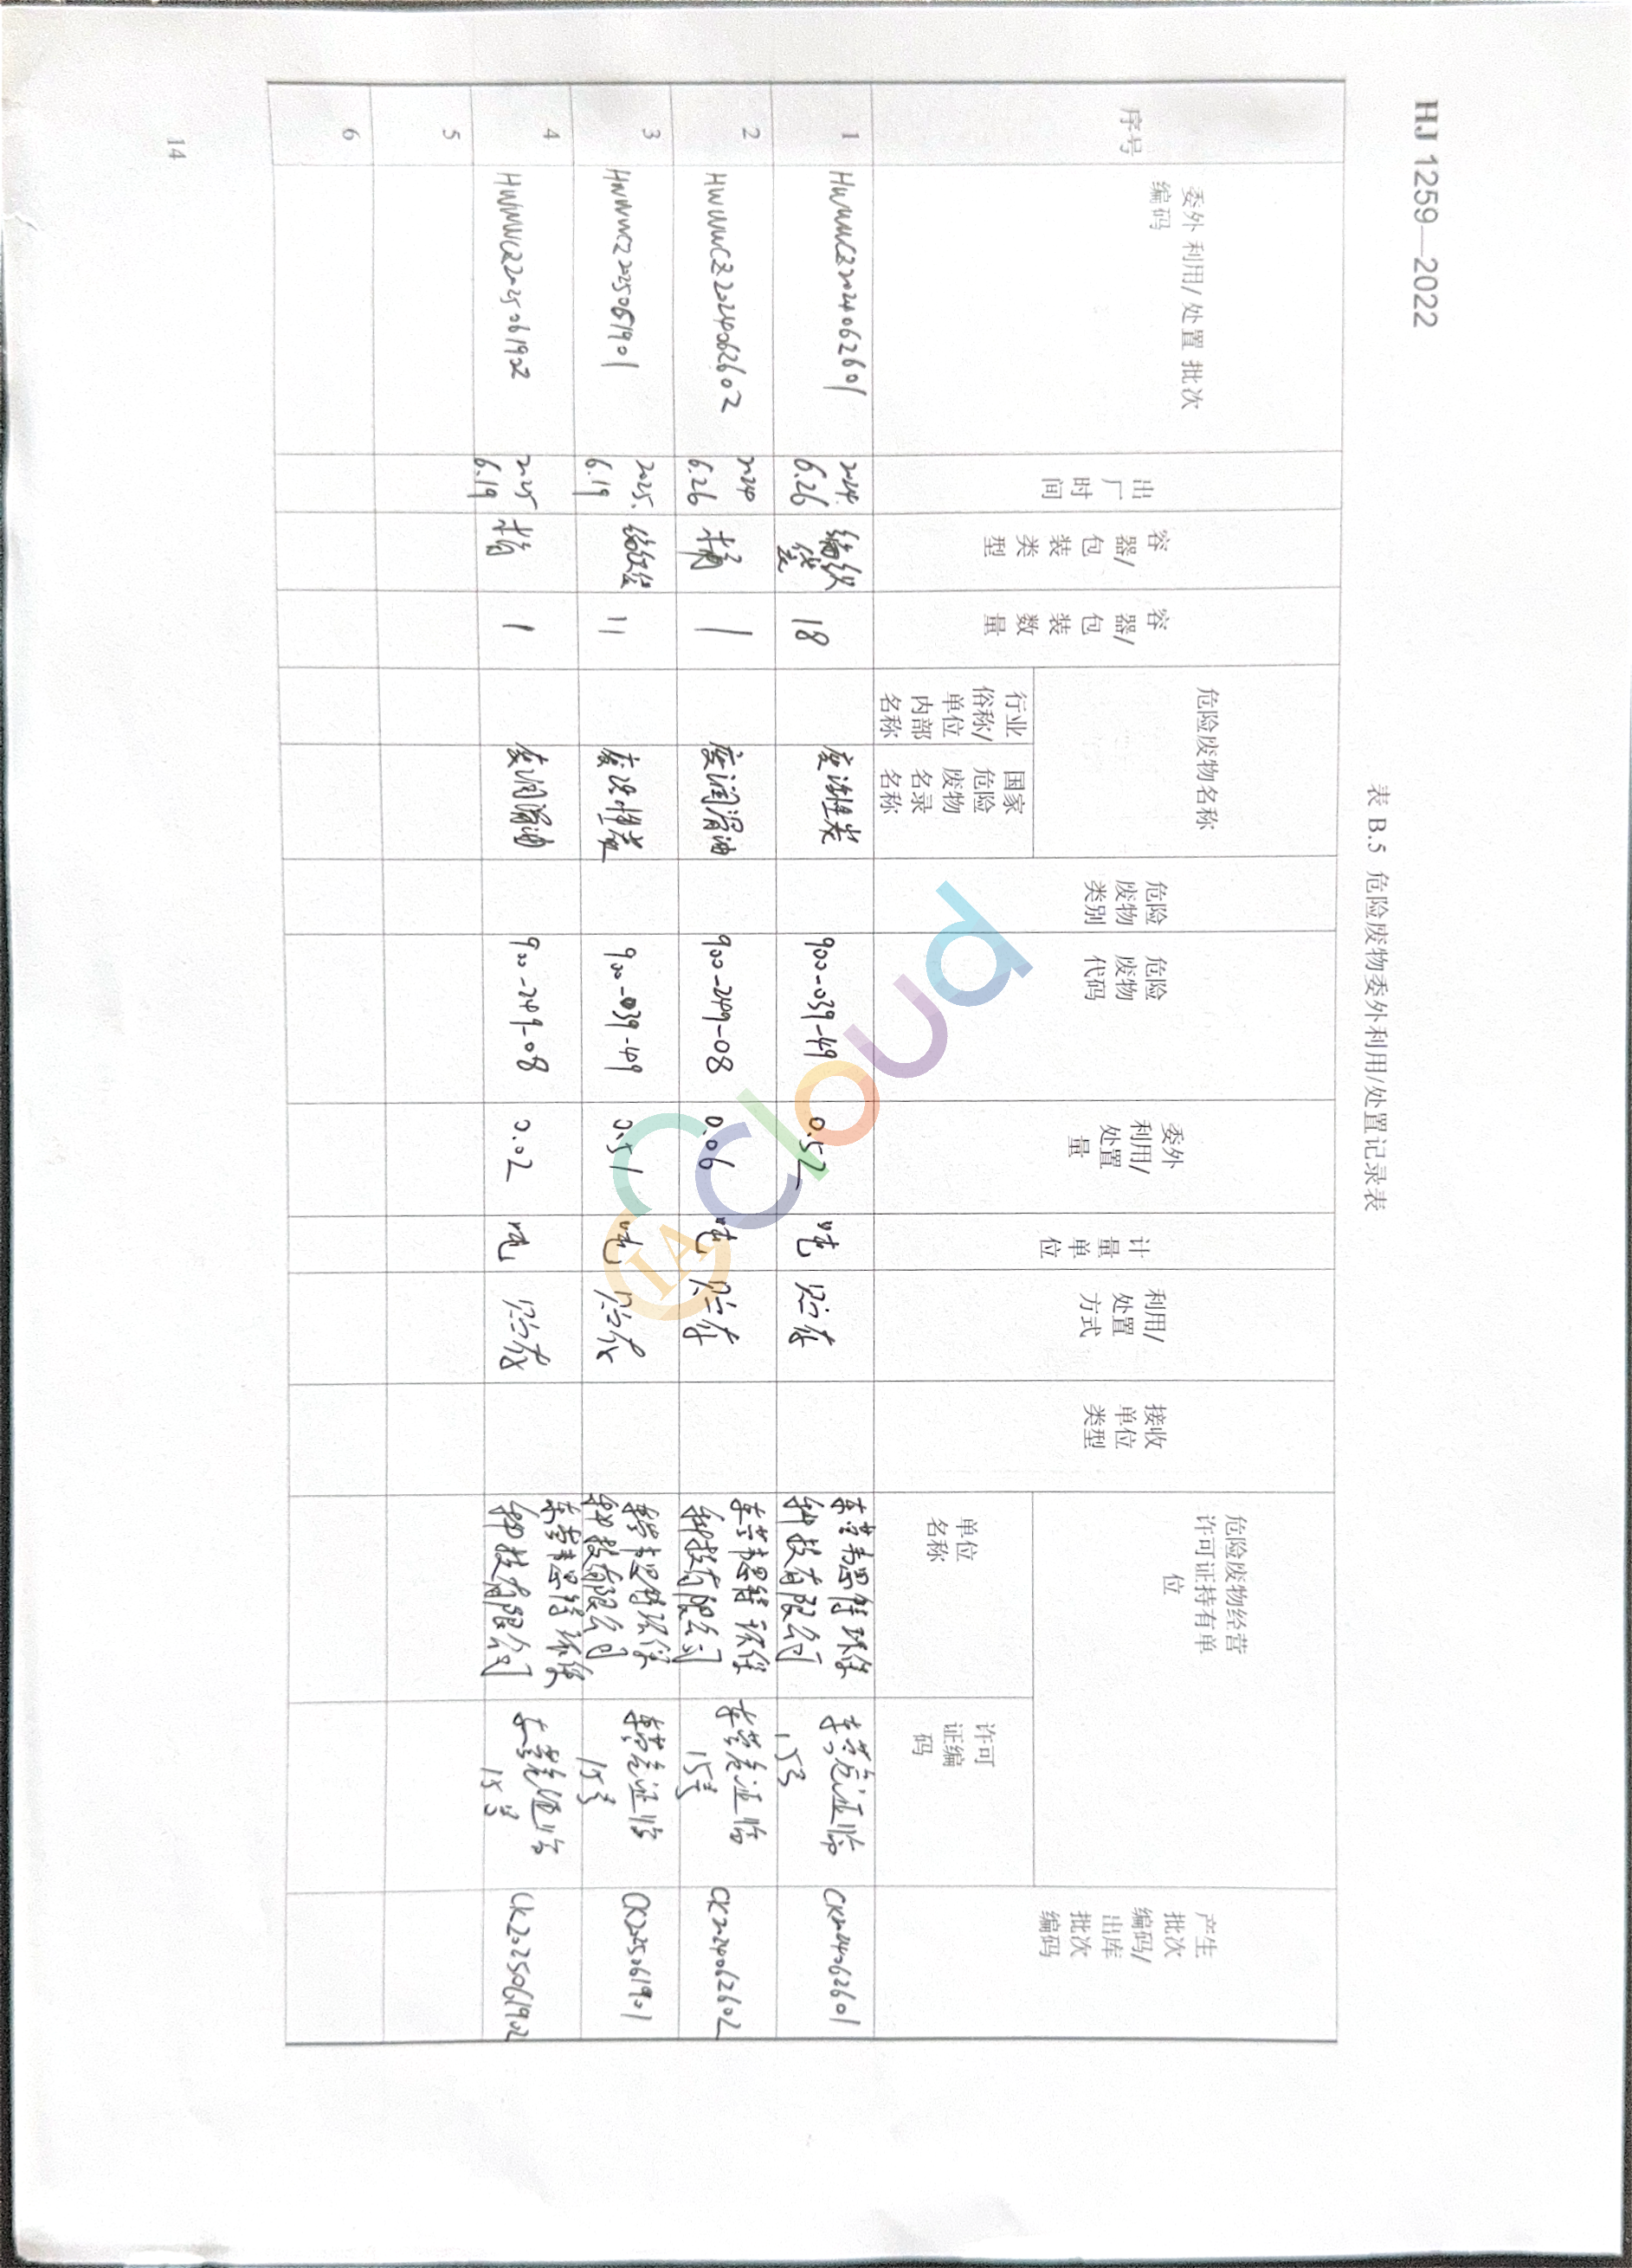 HJ 1259—2022
表 B.5 危险废物委外利用/处置记录表
序号
委外 利用/ 处置 批次
编码
出厂时间
容器/包装类型
容器/包装数量
危险废物名称
行业俗称/单位内部名称
国家危险废物名录名称
危险废物类别
危险废物代码
委外利用/处置量
计量单位
利用/处置方式
接收单位类型
危险废物经营许可证持有单位
单位名称
许可证编码
产生批次编码/出库批次编码
1 HWWWCZ2024062601 2024. 6.26 编织袋 18 废活性炭 900-039-49 0.52 吨 贮存 东营韦思特环保科技有限公司 东营危证临 15号 CK2024062601
2 HWWWCZ2024062602 2024 6.26 桶 1 废润滑油 900-249-08 0.06 吨 贮存 东营韦思特环保科技有限公司 东营危证临 15号 CK2024062602
3 HWWWCZ2025061901 2025. 6.19 11 废活性炭 900-039-49 0.51 吨 贮存 东营韦思特环保科技有限公司 东营危证临 15号 CK2025061901
4 HWWWCZ2025061902 2025 6.19 桶 1 废润滑油 900-249-08 0.02 吨 贮存 东营韦思特环保科技有限公司 东营危证临 15号 CK2025061902
5
6
14
CCloud
IA